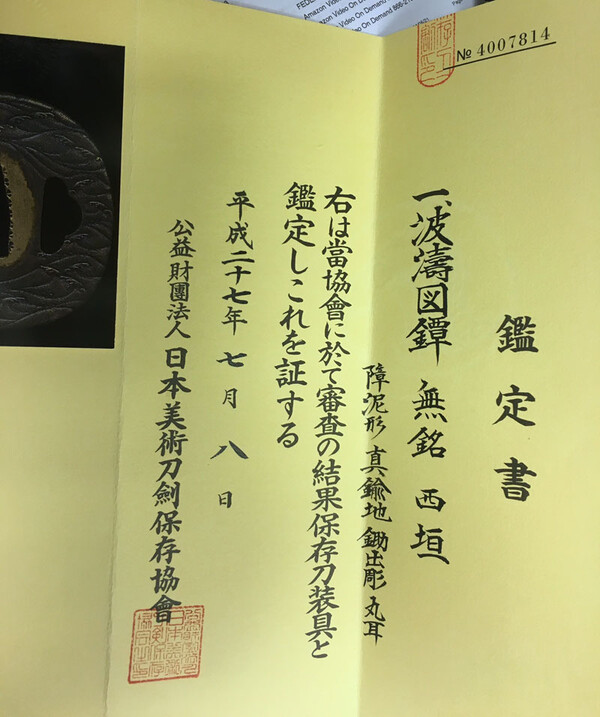 FEDE
Amazon Video On Demand
Amazon Video On Demand 866-21
Video On Demand 866
№ 4007814
鑑定書
一、波濤図鐔 無銘 西垣
障泥形 真鍮地 鋤出彫 丸耳
右は當協會に於て審査の結果保存刀装具と
鑑定しこれを証する
平成二十七年 七月 八日
公益財團法人 日本美術刀劍保存協會